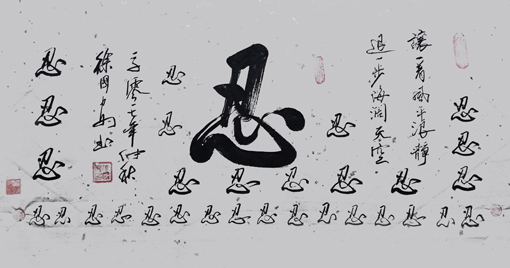 忍
忍
忍
讓一着風平浪靜
退一步海阔天空
忍
忍
忍
忍
二零一七年仲秋
忍
忍
忍
忍忍忍忍忍
忍忍忍忍忍忍忍忍忍忍忍忍忍忍忍忍